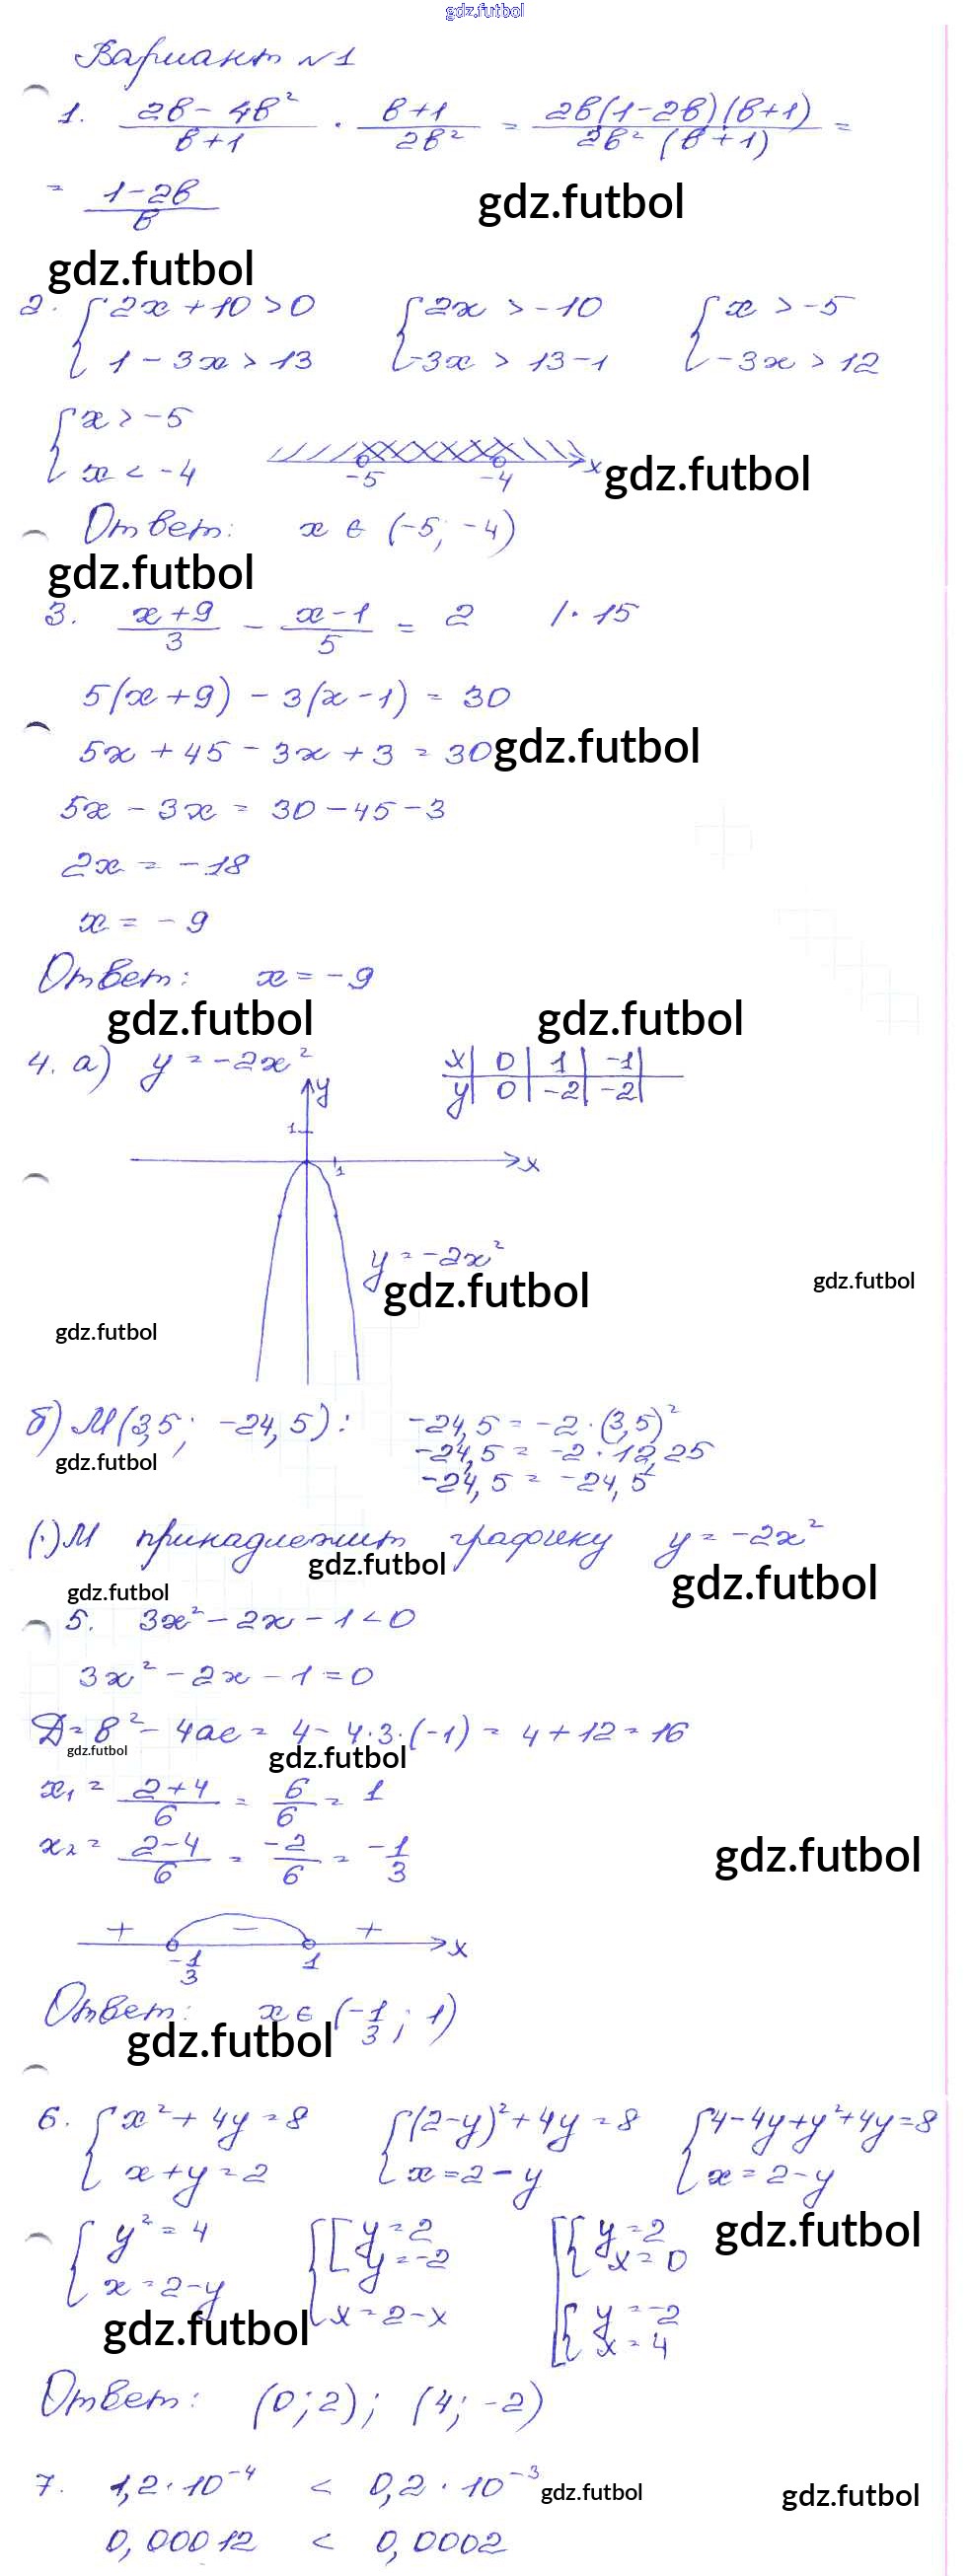 gdz.futbol
Вариант №1
1. (2в - 4в²)/(в+1) · (в+1)/(2в²) = (2в(1-2в)(в+1))/(2в²(в+1)) =
= (1-2в)/в gdz.futbol
gdz.futbol
2. { 2x + 10 > 0 { 2x > -10 { x > -5
1 - 3x > 13 -3x > 13-1 -3x > 12
{ x > -5
x < -4 -5 -4 x gdz.futbol
Ответ: x ∈ (-5; -4)
gdz.futbol
3. (x+9)/3 - (x-1)/5 = 2 /· 15
5(x+9) - 3(x-1) = 30
5x + 45 - 3x + 3 = 30 gdz.futbol
5x - 3x = 30 - 45 - 3
2x = -18
x = -9
Ответ: x = -9
gdz.futbol gdz.futbol
4. а) y = -2x² x | 0 | 1 | -1 |
y | 0 | -2 | -2 |
y
1
x
1
y = -2x²
gdz.futbol gdz.futbol
gdz.futbol
б) M(3,5; -24,5): -24,5 = -2·(3,5)²
-24,5 = -2 · 12,25
gdz.futbol -24,5 = -24,5
(·)M принадлежит графику y = -2x²
gdz.futbol gdz.futbol
gdz.futbol
5. 3x² - 2x - 1 < 0
3x² - 2x - 1 = 0
Д = в² - 4ас = 4 - 4·3·(-1) = 4 + 12 = 16
gdz.futbol gdz.futbol
x₁ = (2+4)/6 = 6/6 = 1
x₂ = (2-4)/6 = -2/6 = -1/3 gdz.futbol
+ - +
-1/3 1 x
Ответ: x ∈ (-1/3; 1)
gdz.futbol
6. { x² + 4y = 8 { (2-y)² + 4y = 8 { 4-4y+y²+4y=8
x + y = 2 x = 2 - y x = 2-y
{ y² = 4 { [ y = 2 [ { y = 2 gdz.futbol
y = -2 x = 0
x = 2-y x = 2-x { y = -2
gdz.futbol x = 4
Ответ: (0; 2); (4; -2)
7. 1,2·10⁻⁴ < 0,2·10⁻³ gdz.futbol gdz.futbol
0,00012 < 0,0002